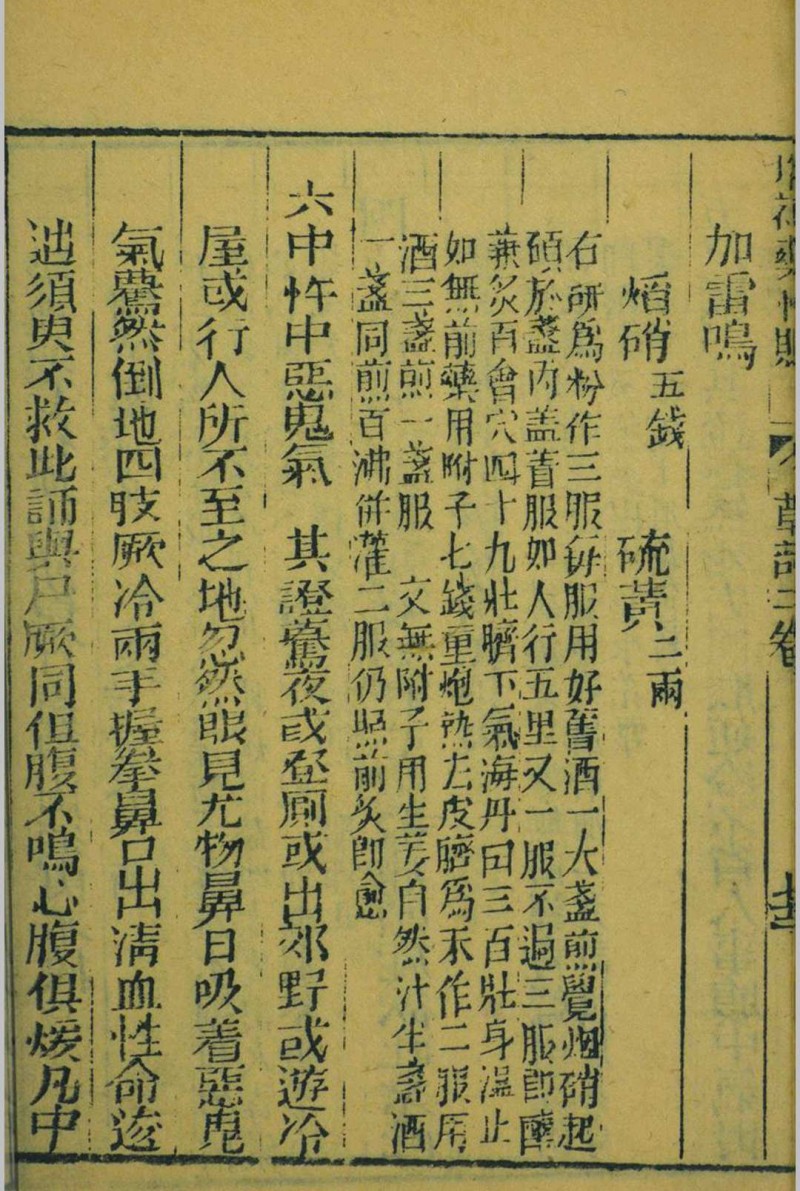 草部二卷
加雷鳴
焰硝五錢 硫黃二兩
右研為粉作三服每服用好舊酒一大盞煎覺烟硝起
碩於盞內盖着服如人行五里又一服不過三服即醒
兼灸百會穴四十九壯臍下氣海丹囙三百壯身溫止
如無前藥用附子七錢重炮熟去皮臍為末作二服用
酒三盞煎一盞服 又無附子用生姜自然汁半盞酒
一盞同煎百沸併灌二服仍照前灸即愈
六中忤中惡鬼氣 其證驀夜或登厠或出郊野或遊冷
屋或行人所不至之地忽然眼見尤物鼻日吸着惡鬼
氣驀然倒地四肢厥冷兩手握拳鼻口出清血性命逡
廵須臾不救此誦與尸厥同但腹不鳴心腹俱煖凡中